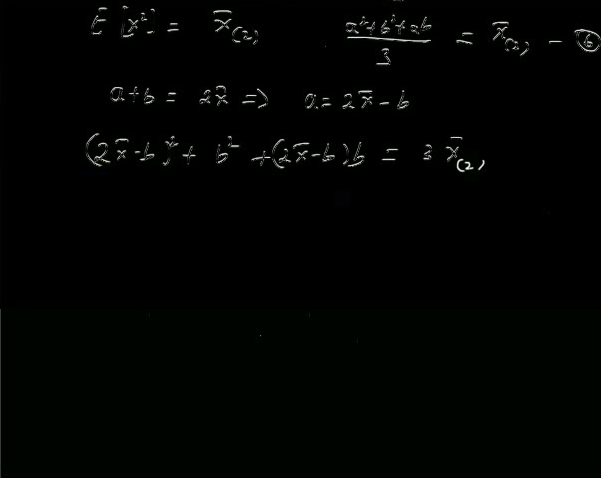 E [x²] = x̄₍₂₎ (a²+b²+ab)/3 = x̄₍₂₎ — ⑥
a+b = 2x̄ => a = 2x̄ – b
(2x̄-b)² + b² + (2x̄-b)b = 3 x̄₍₂₎